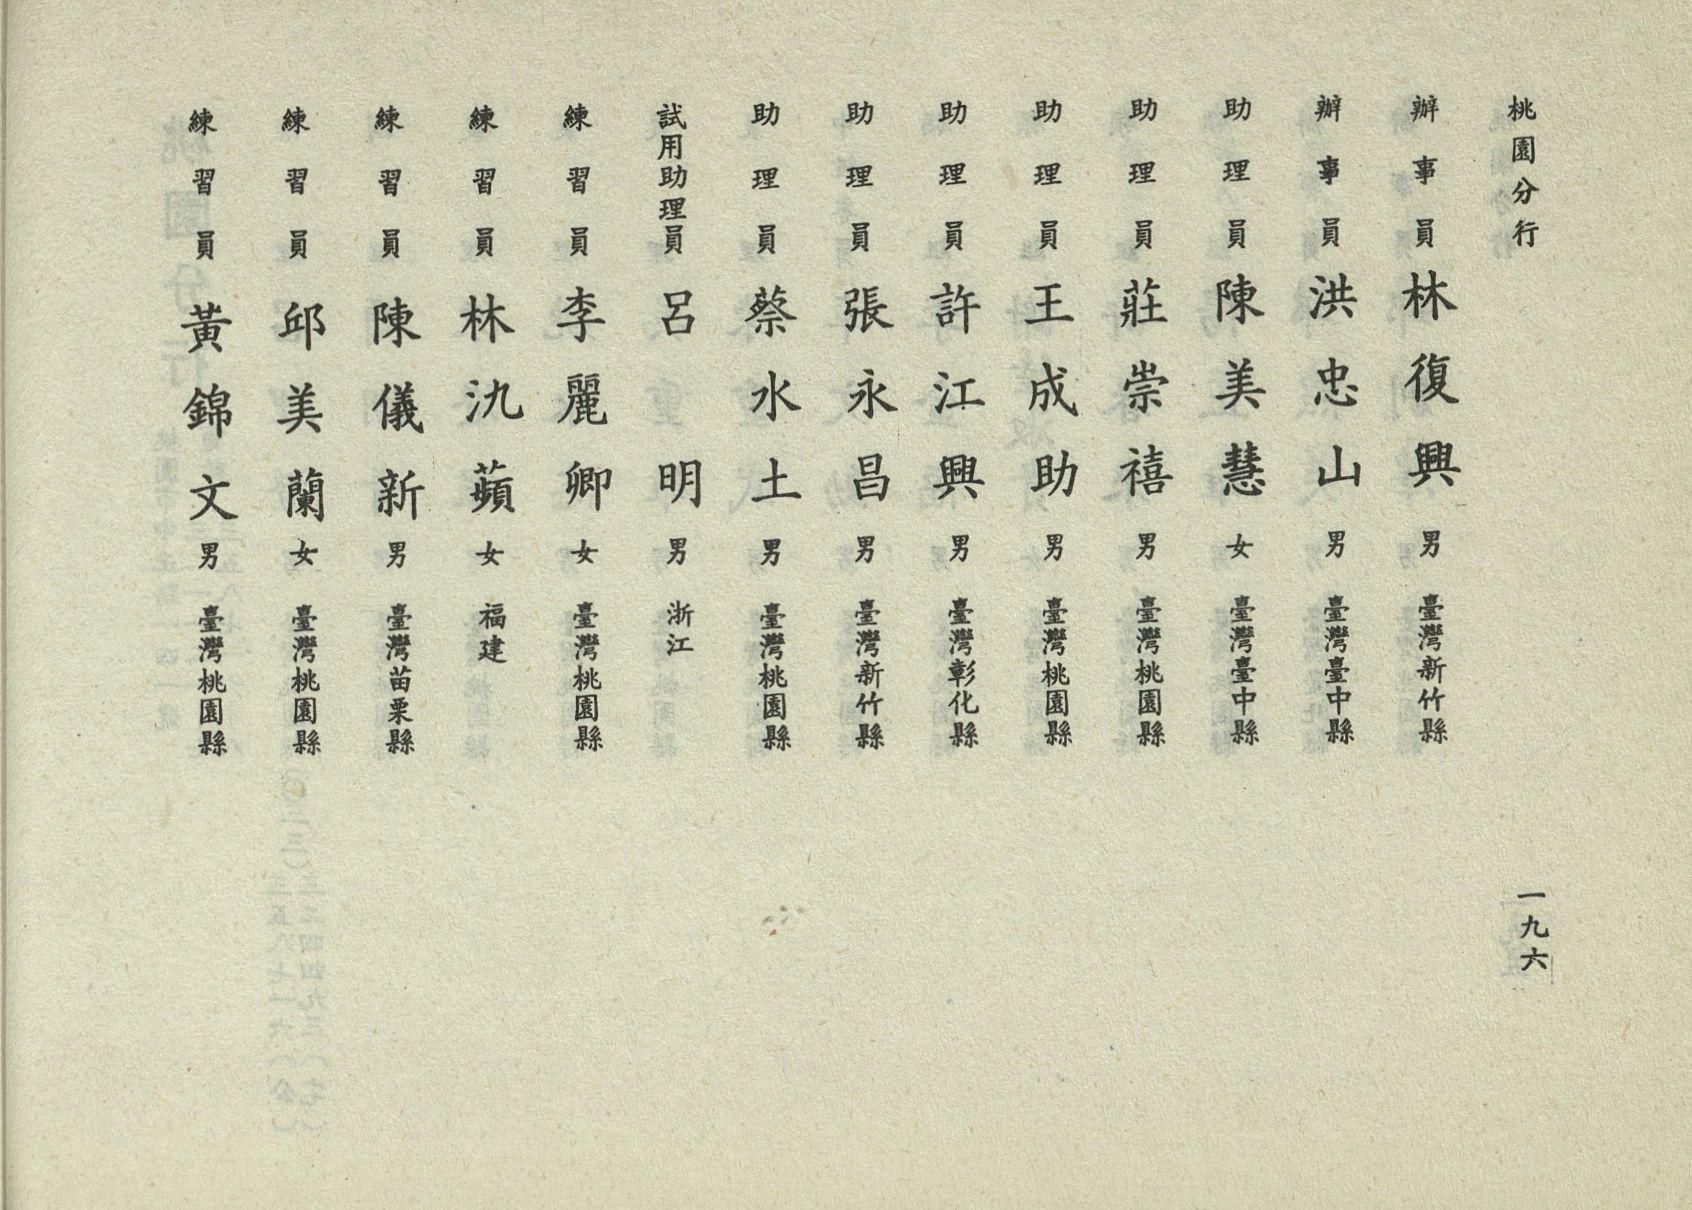 桃園分行
辦事員 林復興 男 臺灣新竹縣
辦事員 洪忠山 男 臺灣臺中縣
助理員 陳美慧 女 臺灣臺中縣
助理員 莊崇禧 男 臺灣桃園縣
助理員 王成助 男 臺灣桃園縣
助理員 許江興 男 臺灣彰化縣
助理員 張永昌 男 臺灣新竹縣
助理員 蔡水土 男 臺灣桃園縣
試用助理員 呂明 男 浙江
練習員 李麗卿 女 臺灣桃園縣
練習員 林氿蘋 女 福建
練習員 陳儀新 男 臺灣苗栗縣
練習員 邱美蘭 女 臺灣桃園縣
練習員 黃錦文 男 臺灣桃園縣
一九六